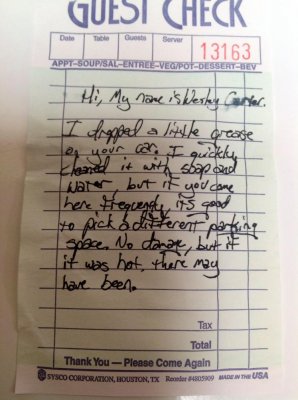 GUEST CHECK
Date Table Guests Server
13163
APPT-SOUP/SAL-ENTREE-VEG/POT-DESSERT-BEV
Hi, My name is Wesley
I dropped a little grease
on your car. I quickly
cleaned it with soap and
water, but if you come
here frequently, it's good
to pick a different parking
space. No damage, but if
it was hot, there may
have been.
Tax
Total
Thank You — Please Come Again
SYSCO CORPORATION, HOUSTON, TX Reorder #4805909 MADE IN THE USA